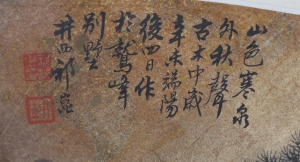 山色寒泉
外秋聲
古木中歲
辛未端陽
後四日作
於鷲峰
別墅
井西郭嵓